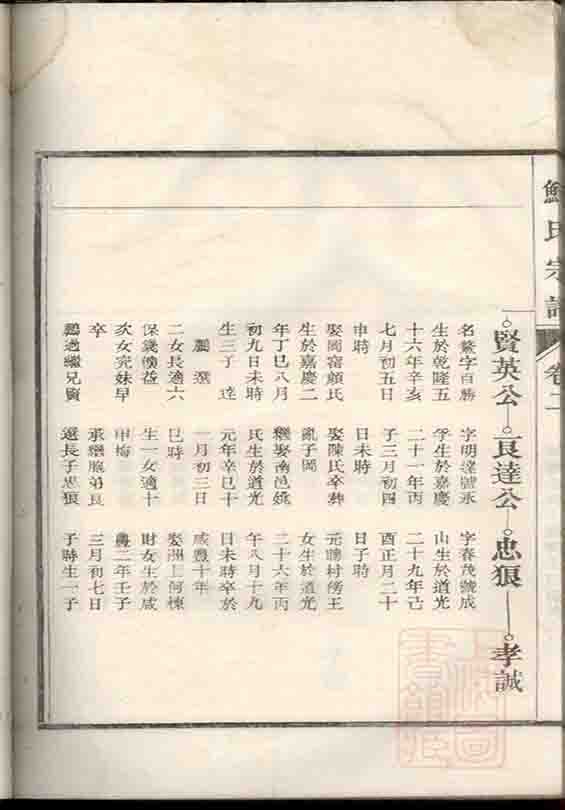 鮑氏宗譜 卷二
賢英公 良達公 忠狼 孝誠
名鰲字百勝
生於乾隆五
十六年辛亥
七月初五日
申時
娶岡窑顧氏
生於嘉慶二
年丁巳八月
初九日未時
生三子 達
鵬 選
二女長適六
保錢煥益
次女完妹早
卒
鵬過繼兄賢
字明達號永
孚生於嘉慶
二十一年丙
子三月初四
日未時
娶陳氏卒葬
亂子岡
繼娶南邑姚
氏生於道光
元年辛巳十
一月初三日
巳時
生一女適十
甲梅
承繼胞弟良
選長子忠狼
字春茂號成
山生於道光
二十九年己
酉正月二十
日子時
元聘村徬王
女生於道光
二十六年丙
午八月十九
日未時卒於
咸豐十年
娶洲上何棟
財女生於咸
豐二年壬子
三月初七日
子時生一子
上海圖書館藏